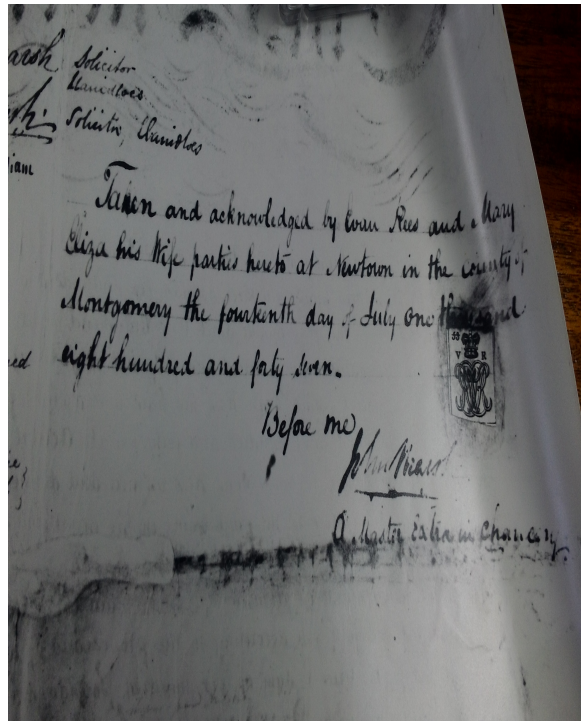 arsh Solicitor
Llanidloes
Solicitor, Llanidloes
iam
Taken and acknowledged by Evan Rees and Mary
Eliza his Wife parties hereto at Newtown in the county of
Montgomery the fourteenth day of July one thousand
eight hundred and forty seven.
ed
V R
Before me
John
A Master Extra in Chancery